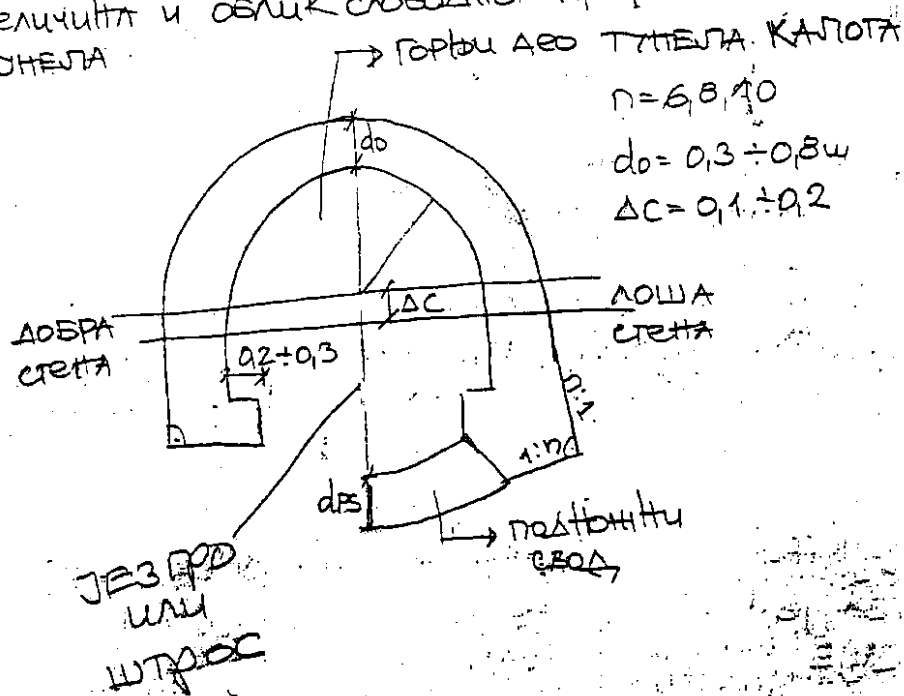 величина и облик
тунела
горњи део тунела. калота
n=6,8,10
do= 0,3÷0,8м
ΔC= 0,1÷0,2
do
ΔC
добра
стена
лоша
стена
0,2÷0,3
n:1
1:n
dps
подножни
свод
језгро
или
штрос